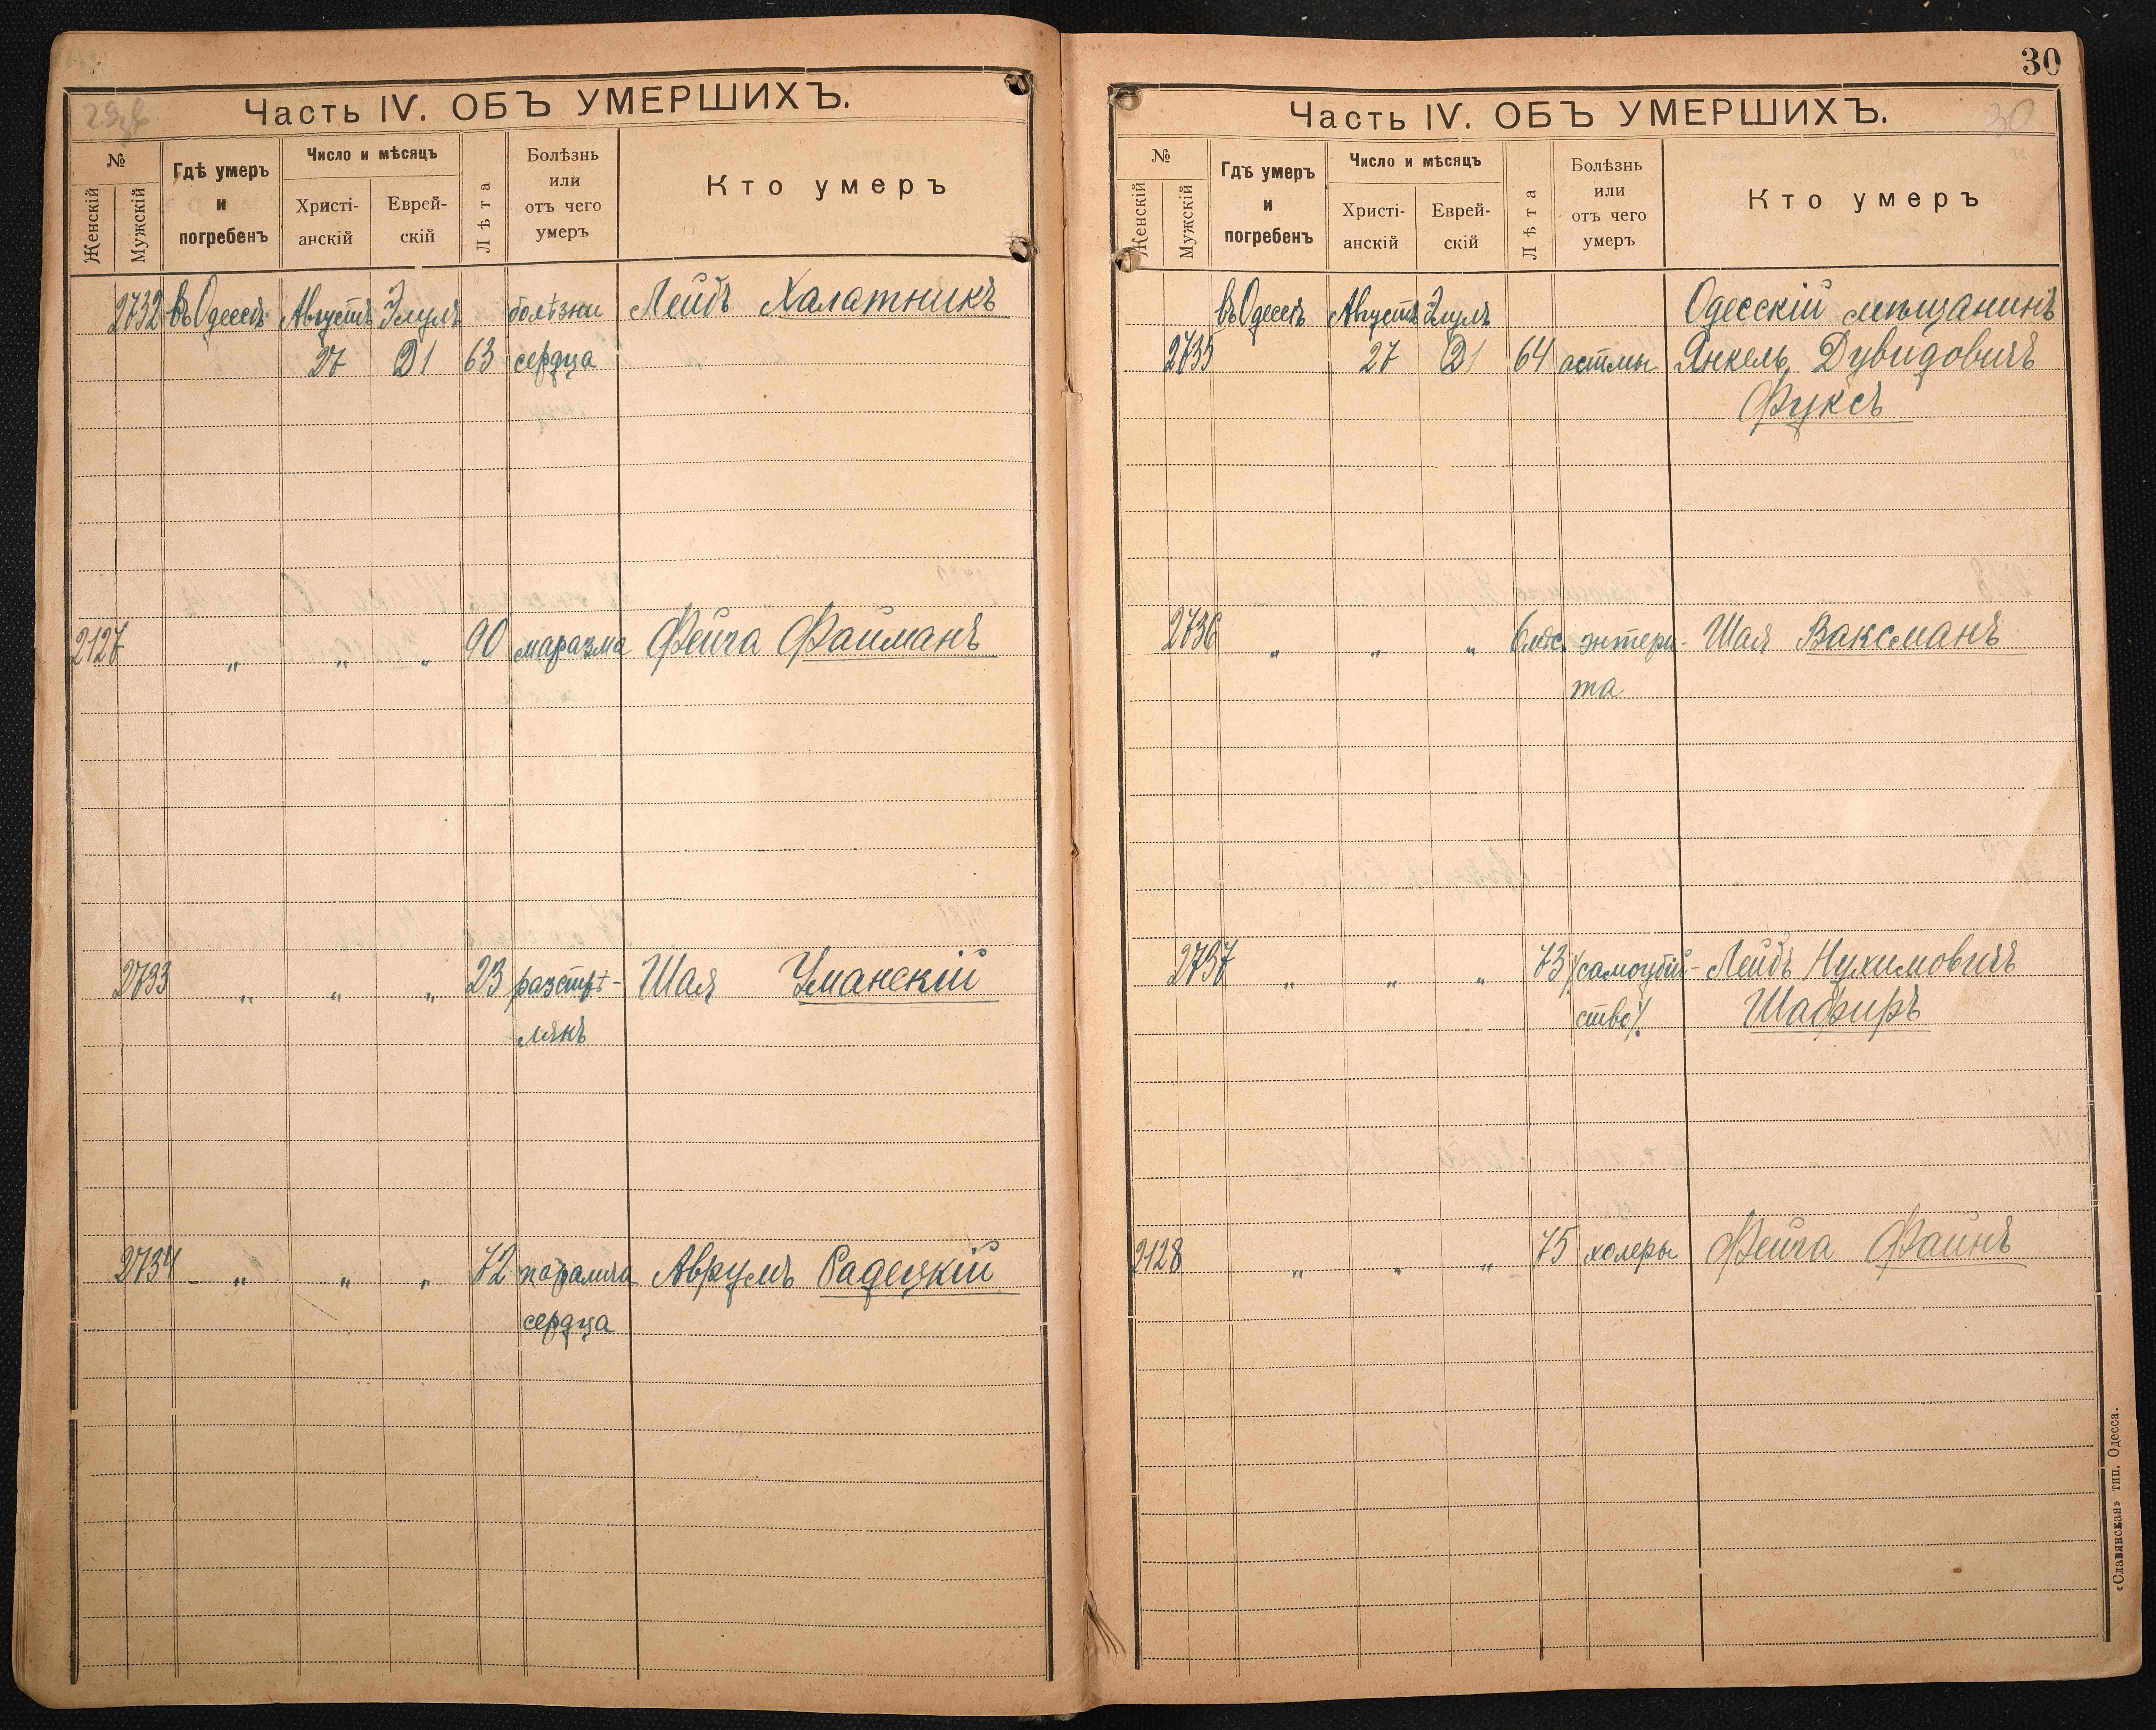 Часть IV. ОБЪ УМЕРШИХЪ.
№
Женскій
Мужскій
Гдѣ умеръ
и
погребенъ
Число и мѣсяцъ
Христі-
анскій
Еврей-
скій
Лѣта
Болѣзнь
или
отъ чего
умеръ
Кто умеръ
2732 въ Одессѣ Августъ Элулъ болѣзни Лейбъ Халатникъ
27 21 63 сердца
2127 „ „ „ 90 маразма Фейга Файманъ
2733 „ „ „ 23 разстрѣ- Шая Уманскій
лянъ
2734 „ „ „ 72 паралича Аврумъ Радецкій
сердца
30
30
Часть IV. ОБЪ УМЕРШИХЪ.
№
Женскій
Мужскій
Гдѣ умеръ
и
погребенъ
Число и мѣсяцъ
Христі-
анскій
Еврей-
скій
Лѣта
Болѣзнь
или
отъ чего
умеръ
Кто умеръ
въ Одессѣ Августъ Элулъ Одесскій мѣщанинъ
2735 27 21 64 астмы Янкель Дувидовичъ
Фуксъ
2736 „ „ „ 6 мѣс. энтери- Шая Ваксманъ
та
2737 „ „ „ 73 /самоубій- Лейбъ Нухимовичъ
ство/. Шафиръ
2128 „ „ „ 75 холеры Фейга Файнъ
«Славянская» тип. Одесса.